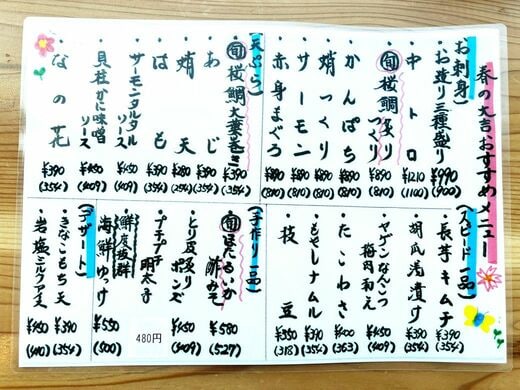 春の大吉おすすめメニュー
お刺身)
・お造り三種盛り ¥990 (900)
・中トロ ¥1210 (1100)
・旬 桜鯛炙り つくり ¥890 (810)
・かんぱち ¥890 (810)
・蛸つくり ¥890 (810)
・サーモン ¥890 (810)
・赤身まぐろ ¥890 (810)
天ぷら)
・旬 桜鯛大葉巻 ¥390 (354)
・あじ ¥390 (354)
・蛸天 ¥280 (254)
・はも ¥390 (354)
・サーモンタルタルソース ¥450 (409)
・貝柱かに味噌ソース ¥450 (409)
・なの花 ¥390 (354)
(スピード一品)
・長芋キムチ ¥390 (354)
・胡瓜浅漬け ¥390 (354)
・ヤゲンなんこつ 梅肉和え ¥450 (409)
・たこわさ ¥400 (363)
・もやしナムル ¥390 (354)
・枝豆 ¥350 (318)
(手作り一品)
・旬 ほたるいか 酢みそ ¥580 (527)
・とり皮炙り ポンズ ¥450 (409)
・プチプチ明太子 480円
・鮮度抜群 海鮮ゆっけ ¥550 (500)
(デザート)
・きなこもち天 ¥390 (354)
・岩塩ミルクアイス ¥450 (410)